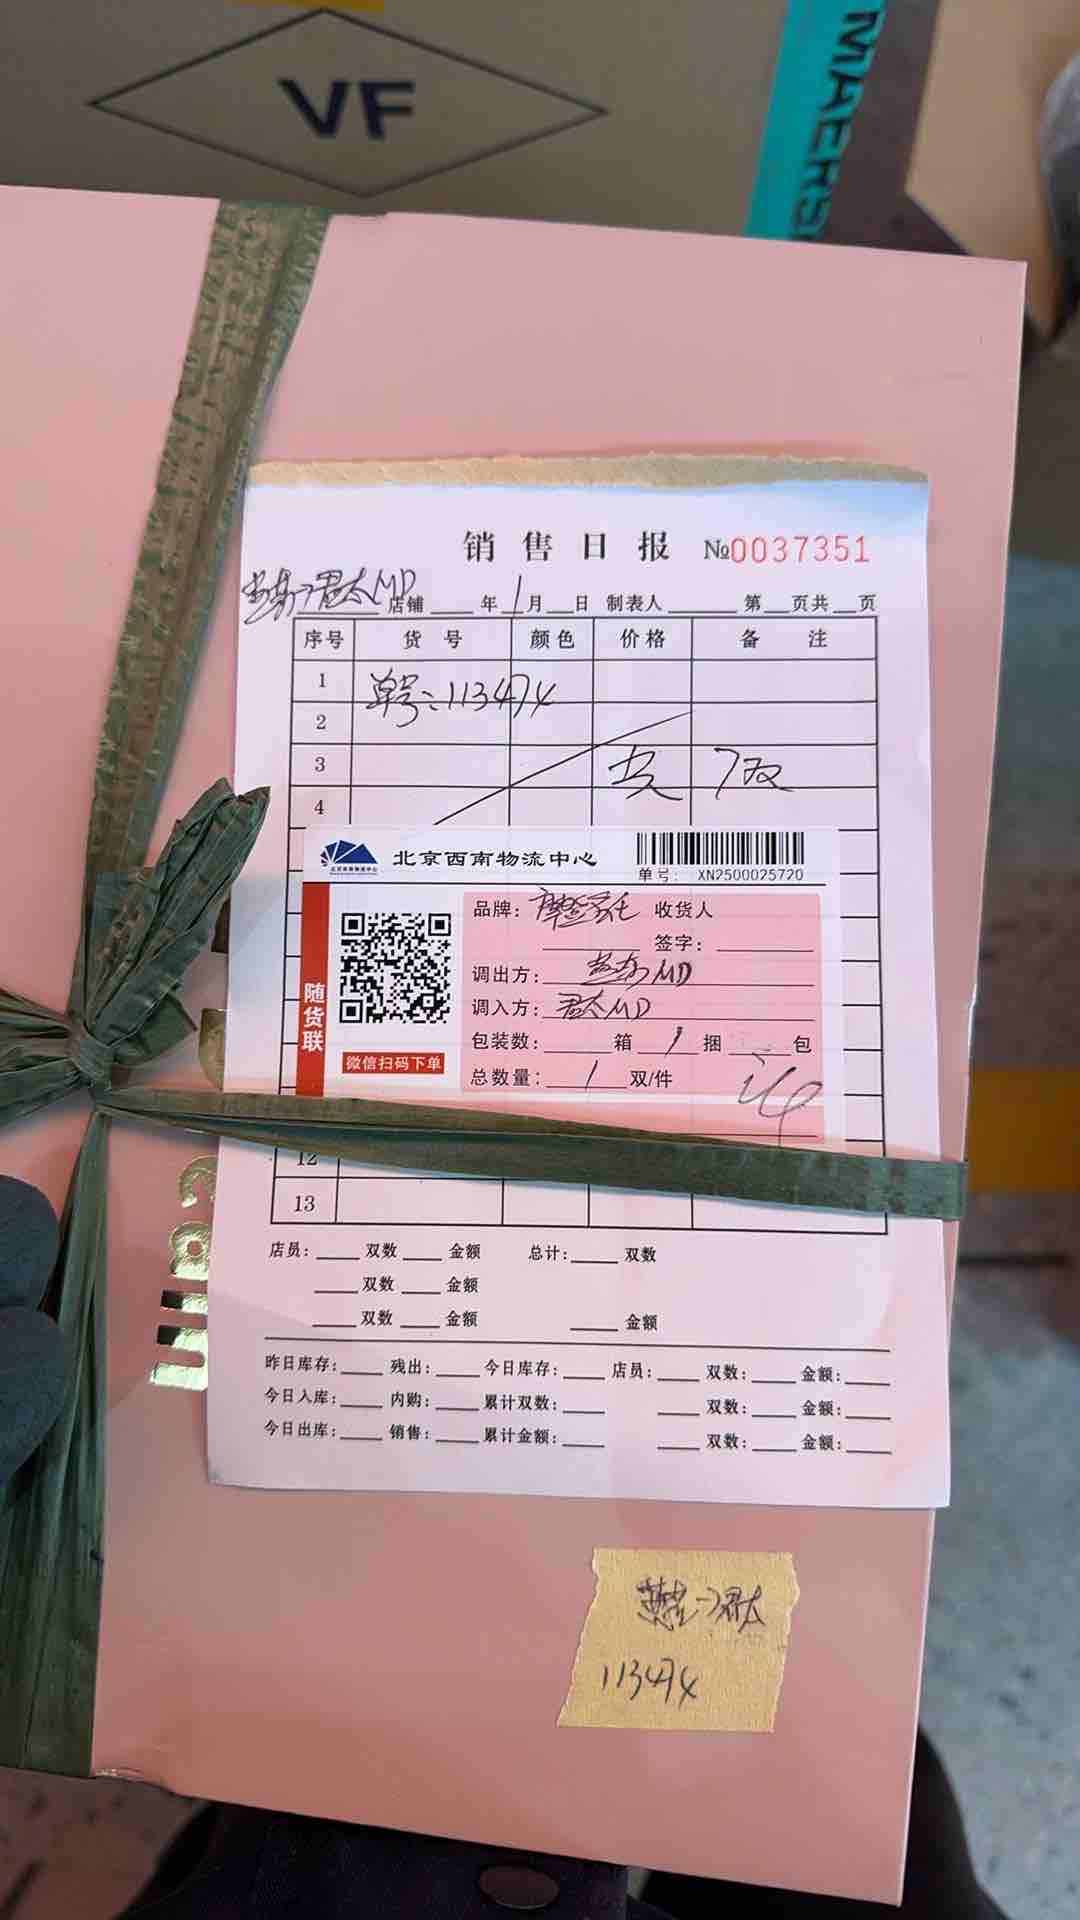 VF
MAERS
销售日报 №0037351
君太MD 店铺 年 1月 日 制表人 第 页共 页
序号 货号 颜色 价格 备注
1 单号:113474
2
3 共 7双
4
北京西南物流中心
单号: XN2500025720
随货联
微信扫码下单
品牌: 收货人
签字:
调出方: MD
调入方: 君太MD
包装数: 箱 1 捆 包
总数量: 1 双/件
12
13
店员: 双数 金额 总计: 双数
双数 金额
双数 金额 金额
昨日库存: 残出: 今日库存: 店员: 双数: 金额:
今日入库: 内购: 累计双数: 双数: 金额:
今日出库: 销售: 累计金额: 双数: 金额:
Cam
君太
113474